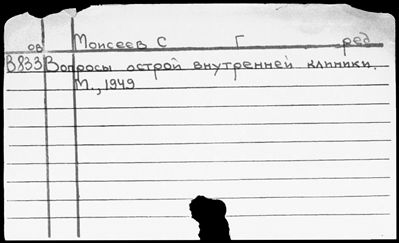 ов Моисеев С Г ред
В833 Вопросы острой внутренней клиники.
М., 1949